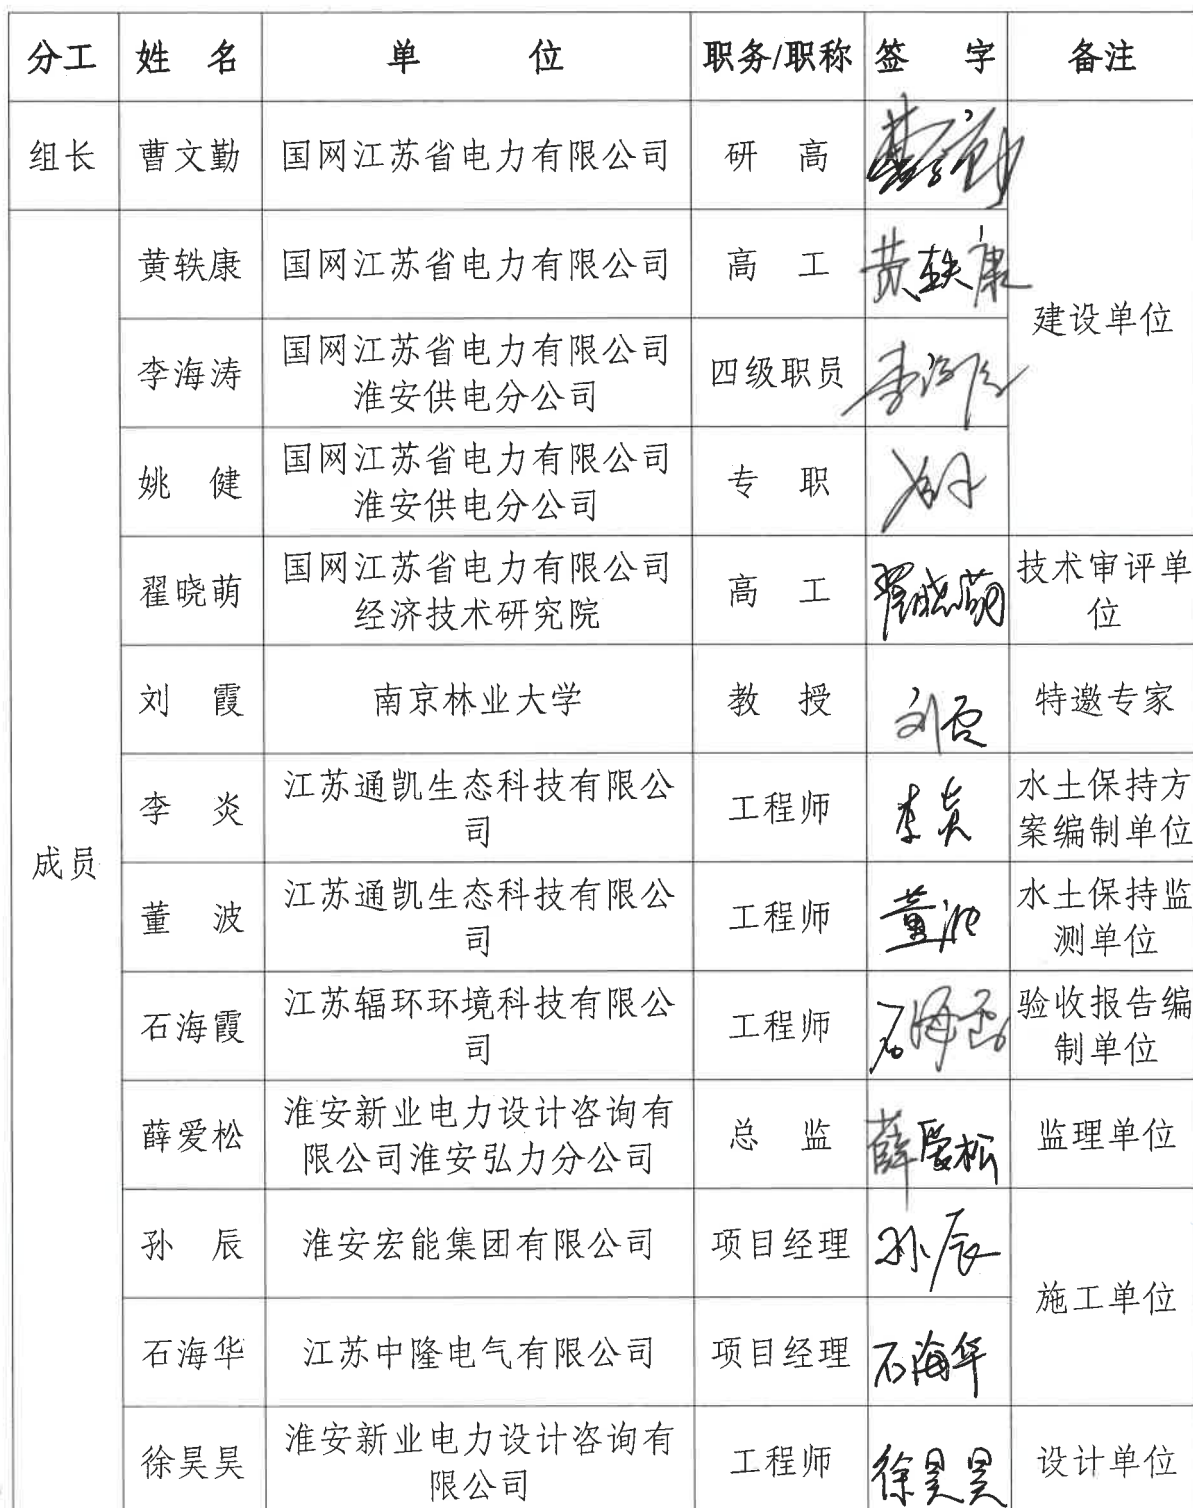 分工 姓 名 单 位 职务/职称 签 字 备注
组长 曹文勤 国网江苏省电力有限公司 研 高 曹文勤
黄轶康 国网江苏省电力有限公司 高 工 黄轶康
建设单位
李海涛 国网江苏省电力有限公司
淮安供电分公司 四级职员 李海涛
姚 健 国网江苏省电力有限公司
淮安供电分公司 专 职
翟晓萌 国网江苏省电力有限公司
经济技术研究院 高 工 翟晓萌 技术审评单
位
刘 霞 南京林业大学 教 授 刘霞 特邀专家
李 炎 江苏通凯生态科技有限公
司 工程师 李炎 水土保持方
案编制单位
成员
董 波 江苏通凯生态科技有限公
司 工程师 董波 水土保持监
测单位
石海霞 江苏辐环环境科技有限公
司 工程师 石海霞 验收报告编
制单位
薛爱松 淮安新业电力设计咨询有
限公司淮安弘力分公司 总 监 薛爱松 监理单位
孙 辰 淮安宏能集团有限公司 项目经理 孙辰
施工单位
石海华 江苏中隆电气有限公司 项目经理 石海华
徐昊昊 淮安新业电力设计咨询有
限公司 工程师 徐昊昊 设计单位